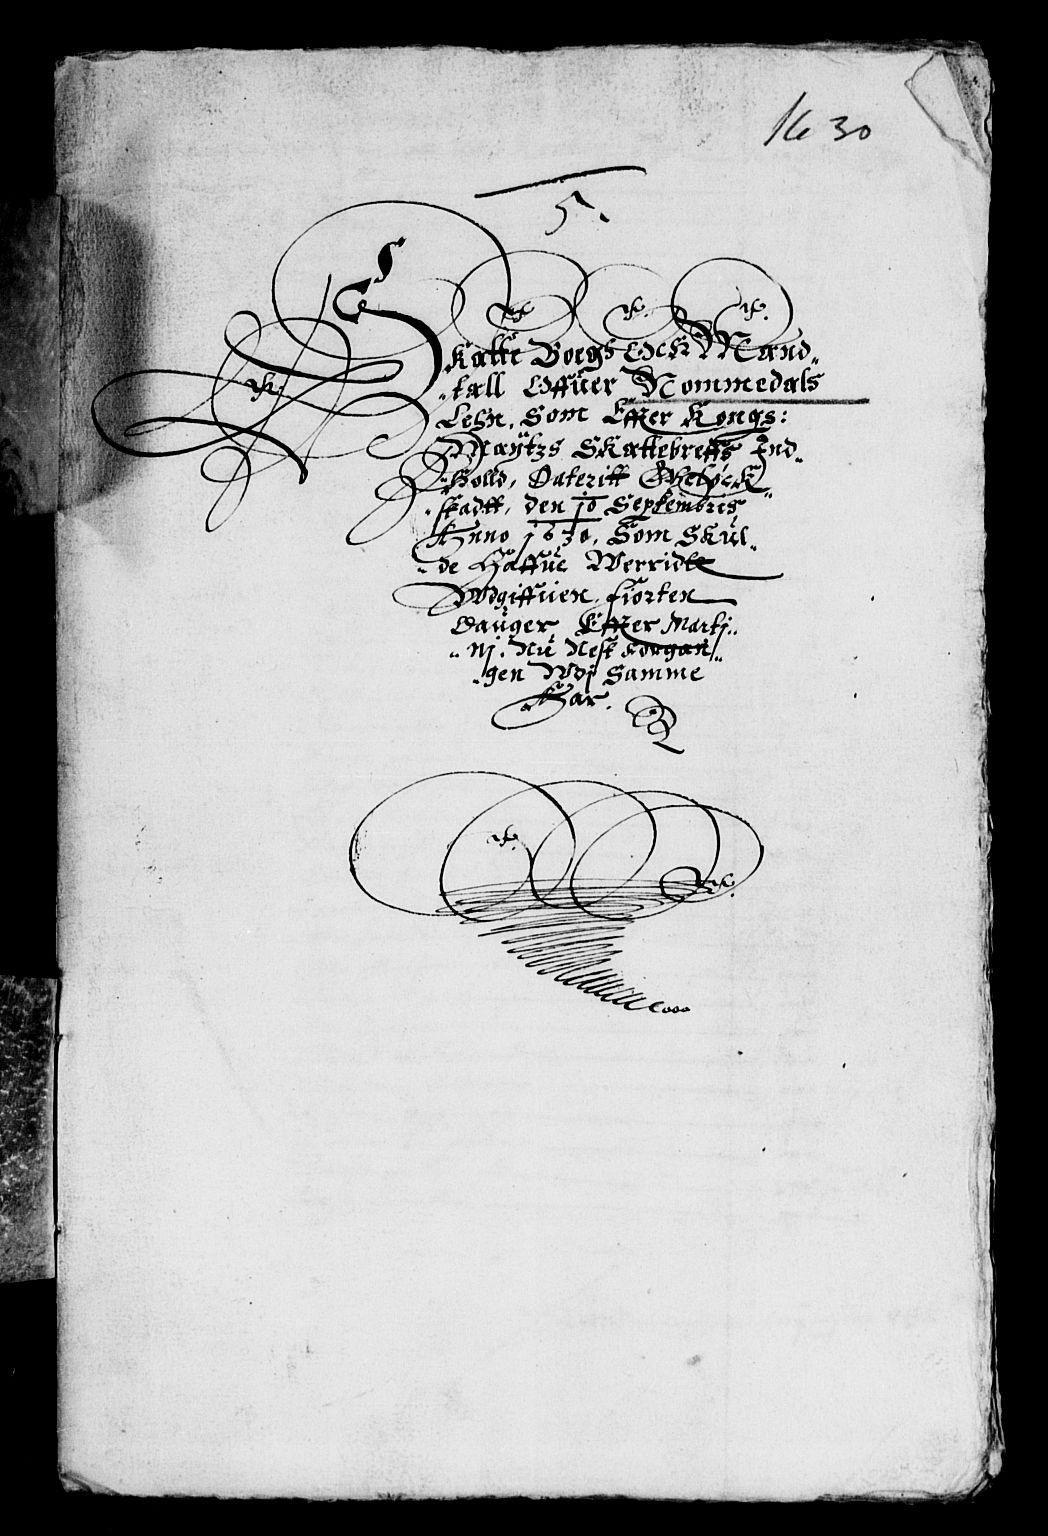 1630
5.
Skatte Boegh Och Mand„
„tall Offuer Nommedals
Lehn, Som Effter Kongs:
Maÿtzs Skattebreffs Ind„
„holld, Dateritt Gheløck„
„stadtt, den 10 Septembris
Anno 1630, Som Skul„
„de Haffue Werridtt
Wdgiffuen, fiorten
Dauger Effter Martj„
„nj. Nu Nest forgan„
„gen Wdj Samme
Aar.